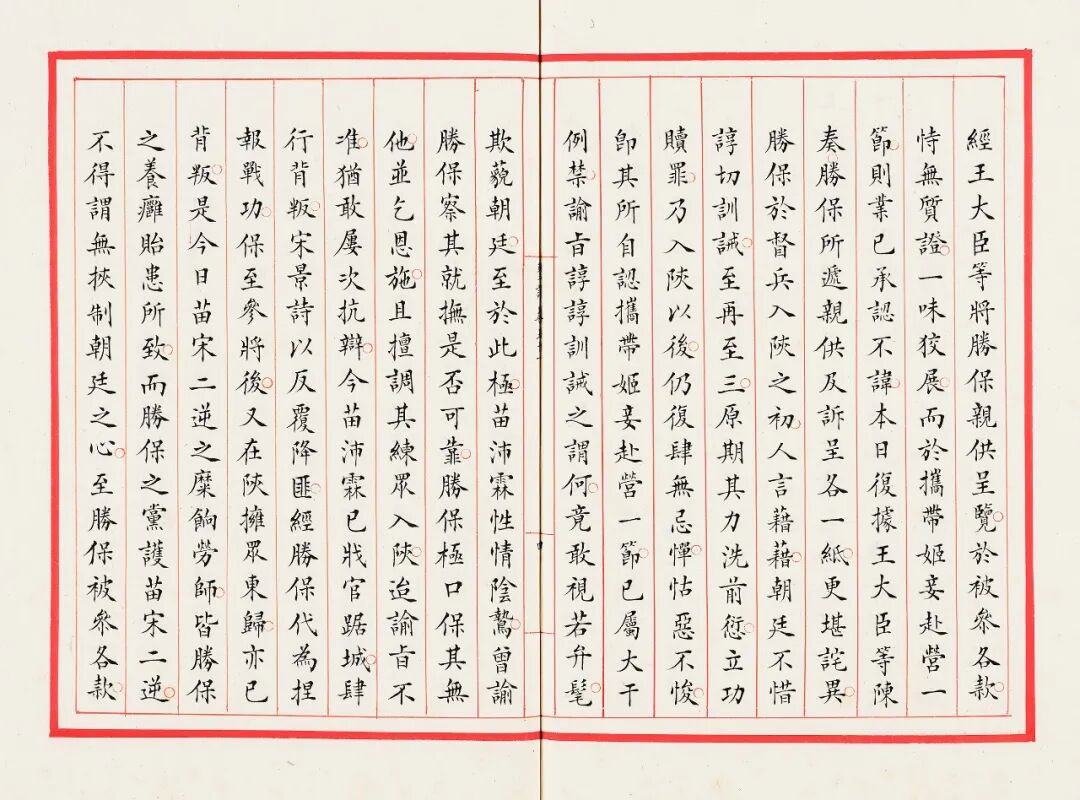 經王大臣等將勝保親供呈覽於被參各款
恃無質證一味狡展而於攜帶姬妾赴營一
節則業已承認不諱本日復據王大臣等陳
奏勝保所遞親供及訴呈各一紙更堪詫異
勝保於督兵入陝之初人言藉藉朝廷不惜
諄切訓誡至再至三原期其力洗前愆立功
贖罪乃入陝以後仍復肆無忌憚怙惡不悛
卽其所自認攜帶姬妾赴營一節已屬大干
例禁諭旨諄諄訓誡之謂何竟敢視若弁髦
欺藐朝廷至於此極苗沛霖性情陰鷙曾諭
勝保察其就撫是否可靠勝保極口保其無
他並乞恩施且擅調其練眾入陝迨諭旨不
准猶敢屢次抗辯今苗沛霖已戕官踞城肆
行背叛宋景詩以反覆降匪經勝保代為捏
報戰功保至參將後又在陝擁眾東歸亦已
背叛是今日苗宋二逆之糜餉勞師皆勝保
之養癰貽患所致而勝保之黨護苗宋二逆
不得謂無挾制朝廷之心至勝保被參各款